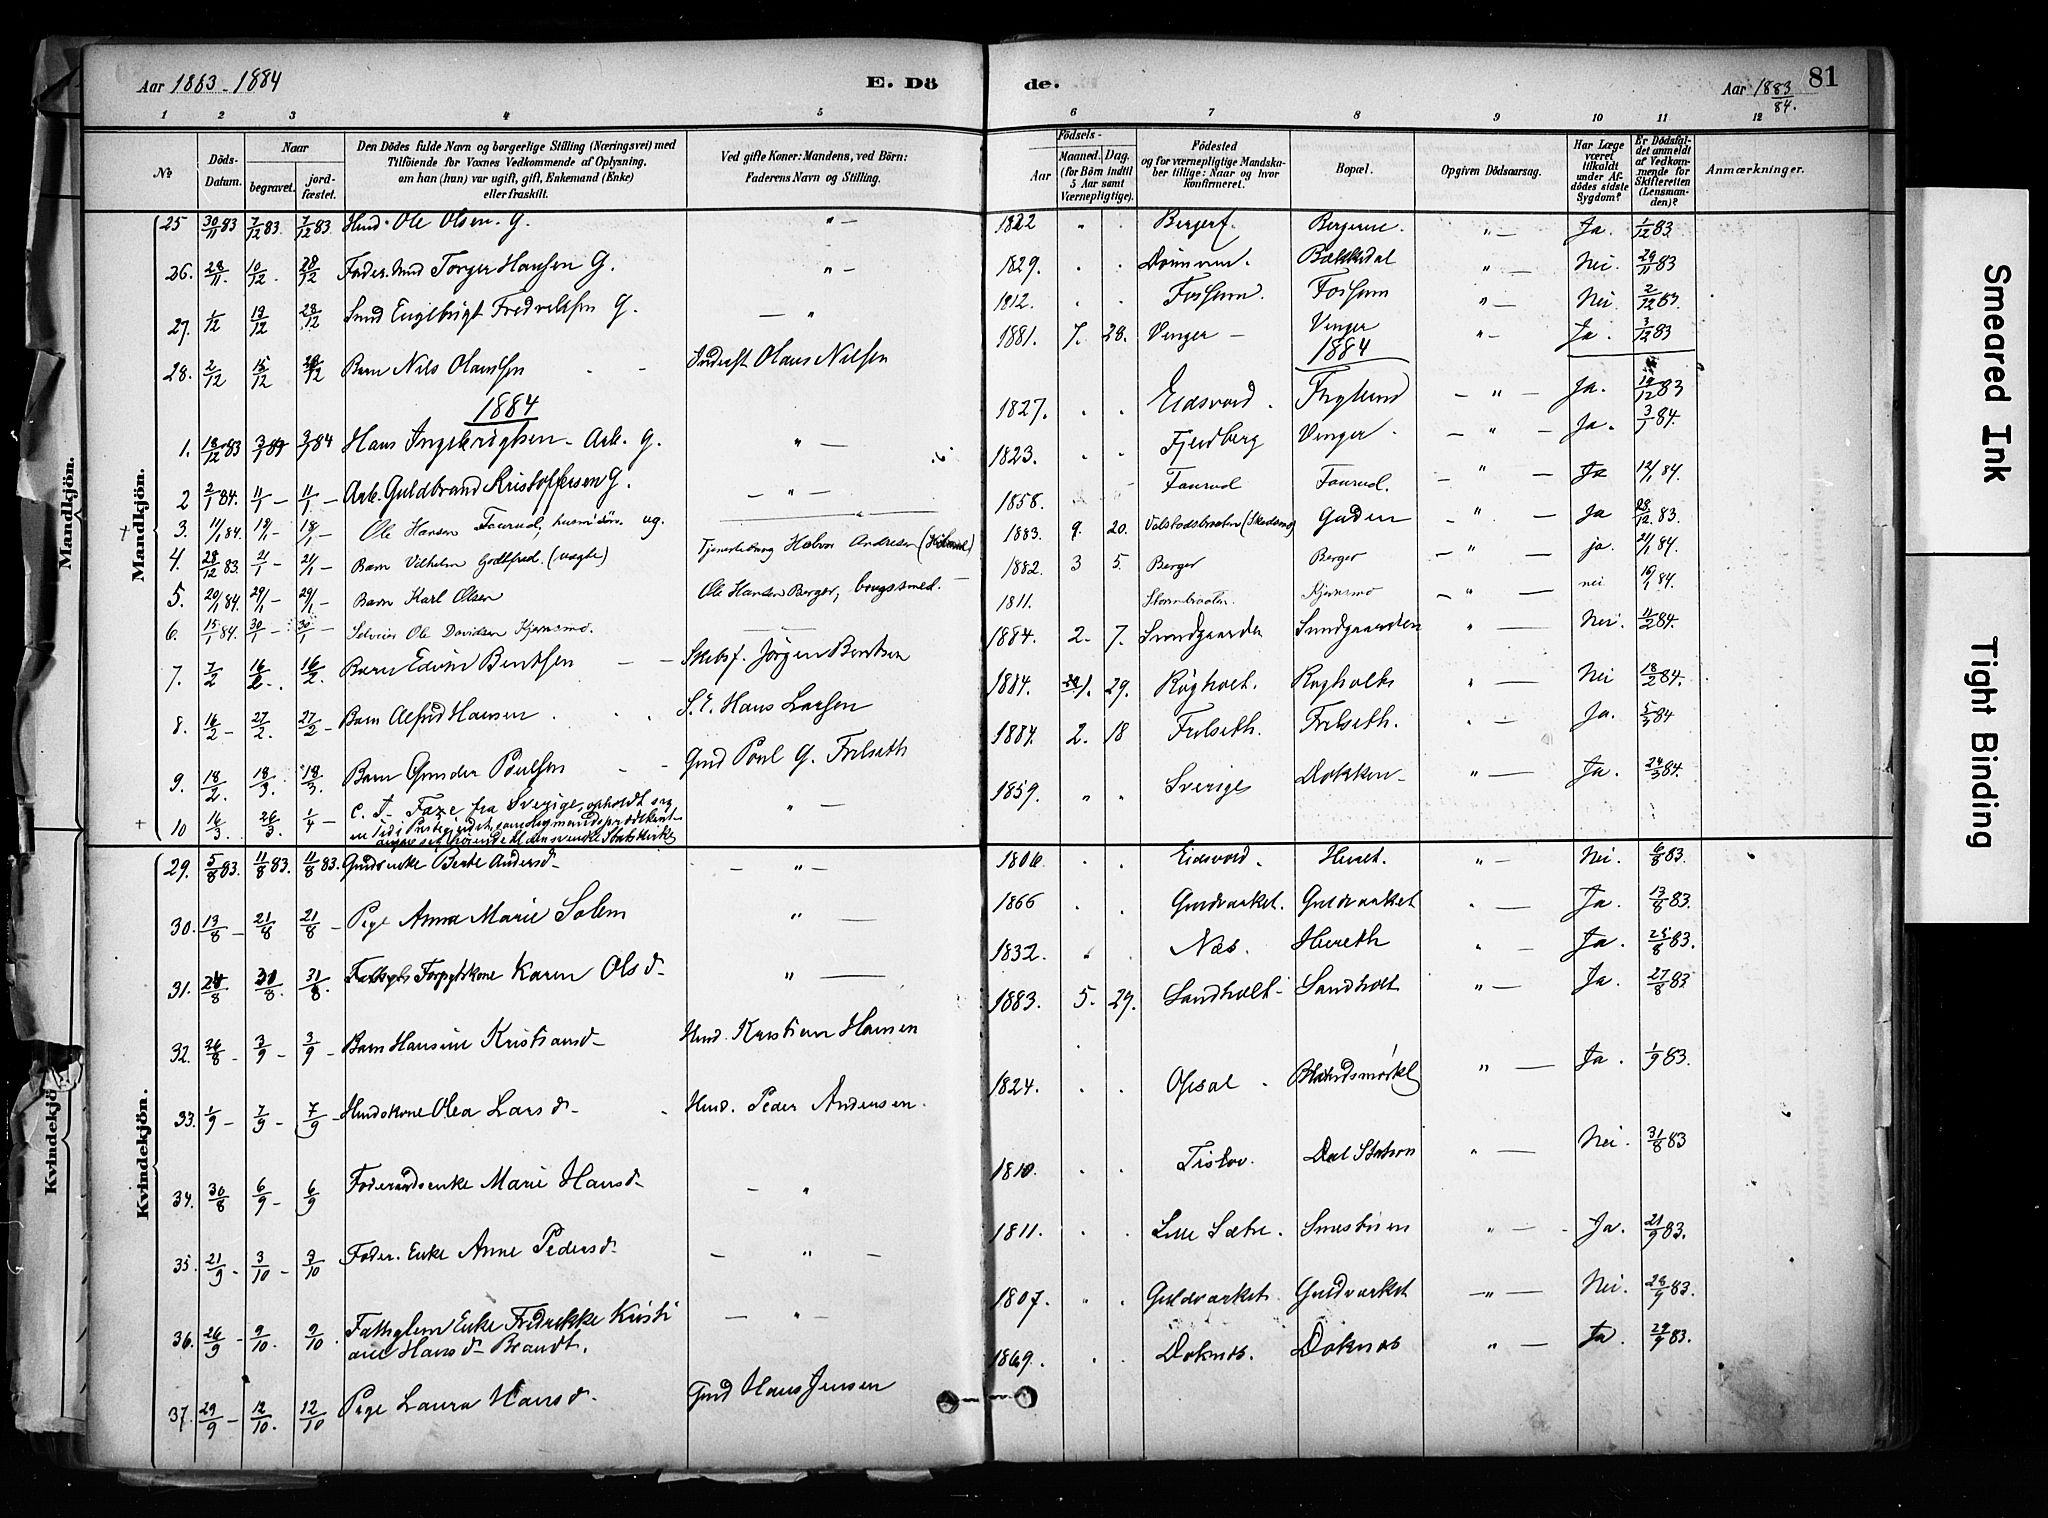 Aar 1883-1884
E. Dö
de.
Aar 1883/84.
81
1 2 3 4 5 6 7 8 9 10 11 12
№
Döds-Datum.
Naar
begravet.
jord-fæstet.
Den Dödes fulde Navn og borgerlige Stilling (Næringsvei) med
Tilföiende for Voxnes Vedkommende af Oplysning,
om han (hun) var ugift, gift, Enkemand (Enke)
eller fraskilt.
Ved gifte Koner: Mandens, ved Börn:
Faderens Navn og Stilling.
Födsels-
Aar
Maaned. Dag.
(for Börn indtil
5 Aar samt
Værnepligtige).
Födested
og for værnepligtige Mandska-
ber tillige: Naar og hvor
konfirmeret.
Bopæl.
Opgiven Dödsaarsag.
Har Læge
været
tilkaldt
under Af-
dödes sidste
Sygdom?
Er Dödsfal-
det anmeldt
af Vedkom-
mende for
Skifteretten
(Lensman-
den)?
Anmærkninger.
Mandkjön.
Mandkjön.
25 30/11 83 7/12 83. 7/12 83. Husd. Ole Olsen. G. " — 1822 Bergerf. Bergerene. " — Ja. 1/12 83.
26. 28/11. 10/12. 28/12 Foder. Torger Hansen G. " — 1829. Bækkedal " — Nei. 29/11 83
27. 1/12 19/12 28/12 Engebrigt Fredriksen G. — " 1812. Fossum. Fossum " — Nei. 2/12 83.
28. 2/12 15/12 28/12 Barn Nils Olaussen Inderst Olaus Nilsen 1881. 7. 28. Venger — Venger " — Ja. 3/12 83
1884
1884
1. 18/12 83 3/1 84 3/1 84 Hans Ingebrigtsen - Arb. G. " — 1827. Eidsvold. Fryslund — " — Ja. 19/12 83
2 2/1 84. 11/1 — 11/1 — Arb. Guldbrand Kristoffersen G. — " — 1823. Fjeldberg Venger. — " — Ja. 3/1 84.
+ 3. 11/1 84. 19/1 — 18/1 — Ole Hansen Faurud, husmdsön. ug. 1858. Faurud Faurud. — " — Ja 12/1 84.
4. 28/12 83. 21/1 — 21/1 — Barn Vilhelm Godtfred. (uægte) Tjenestedreng Halvor Andresen 1883. 9. 20. Volstadsbraaten (Skedsmo) Guden — " — Ja 28/12 83.
5. 20/1 84. 29/1 — 29/1 — Barn Karl Olsen Ole Hansen Berger, brugssmed. — 1882. 3 5. Berger Berger — " — ja. 21/1 84.
6. 15/1 84. 30/1 — 30/1 — Selveier Ole Davidsen Kjernsmo. 1811. Stormbraaten. Kjernsmo — " — nei 16/1 84.
7. 7/2 16/2. 16/2. Barn Edvin Berntsen — — Skibsf. Jörgen Berntsen 1884. 2. 7. Sundgaarden Sundgaarden " — Nei. 11/2 84.
8. 16/2 — 27/2. 27/2 — Barn Alfred Hansen. S. E. Hans Larsen 1884. 1. 29. Røgholt. Rogholt " — Nei 18/2 84.
9. 18/2. 18/3. 18/3. Barn Gunder Poulsen — — Gmd Poul G. Frilseth 1884. 2. 18 Frilseth. Frilseth. " — Ja. 5/3 84
+ 10 16/3. 26/3. 1/4 — C. J. Faxe fra Sverige, opholdt sig " — 1859. " " Sverige Dokken — " — Ja. 24/3 84.
en Tid i Præstegjeldet som
til den svenske Statskirke
Kvindekjön.
Kvindekjön.
29. 5/8 83. 11/8 83. 11/8 83. Gmdsenke Berte Andersd. — " — 1806. Eidsvold. " — Nei. 6/8 83.
30. 13/8 — 21/8 21/8 — Pige Anna Marie Solem " — 1866 Guldværket. Guldværket " — Ja. 13/8 83.
31. 24/8 31/8. 31/8. Karen Olsd. " — 1832. Næs. " — Ja. 25/8 83.
32. 26/8 — 3/9 — 3/9 — Barn Hansine Kristiansd. Husd. Kristian Hansen 1883. 5. 29. Sandholt. Sandholt " — Ja. 27/8 83
33. 1/9 — 7/9 — 7/9 — Husdskone Olea Larsd. Husd. Peder Andersen. 1824. Opsal. " — Ja. 1/9 83.
34. 30/8 6/9 — 6/9 Foderaadsenke Marie Hansd. — " 1810. Dal Station " — Nei. 31/8 83
35. 21/9 — 3/10 — 3/10 Foder. Enke Anne Pedersd. — " — 1811. Lille Sætre. Smestuen " — Ja. 21/9 83.
36. 26/9 — 9/10. 9/10. Fattiglem Enke Fredrikke Kristi — " 1807. Guldværket. Guldværket — " — Nei. 28/9 83.
ane Hansd. Brandt.
37. 29/9 — 12/10. 12/10 Pige Laura Hansd. Gmd Hans Jensen 1869. Doknes. Doknes " — Ja. 29/9 83.
Smeared Ink
Tight Binding